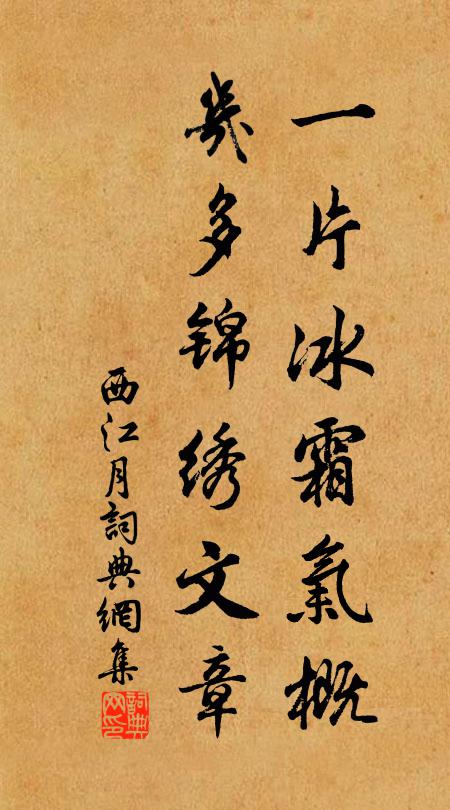 一片冰霜氣概
幾多锦绣文章
西江月詞典網集
詞典網印